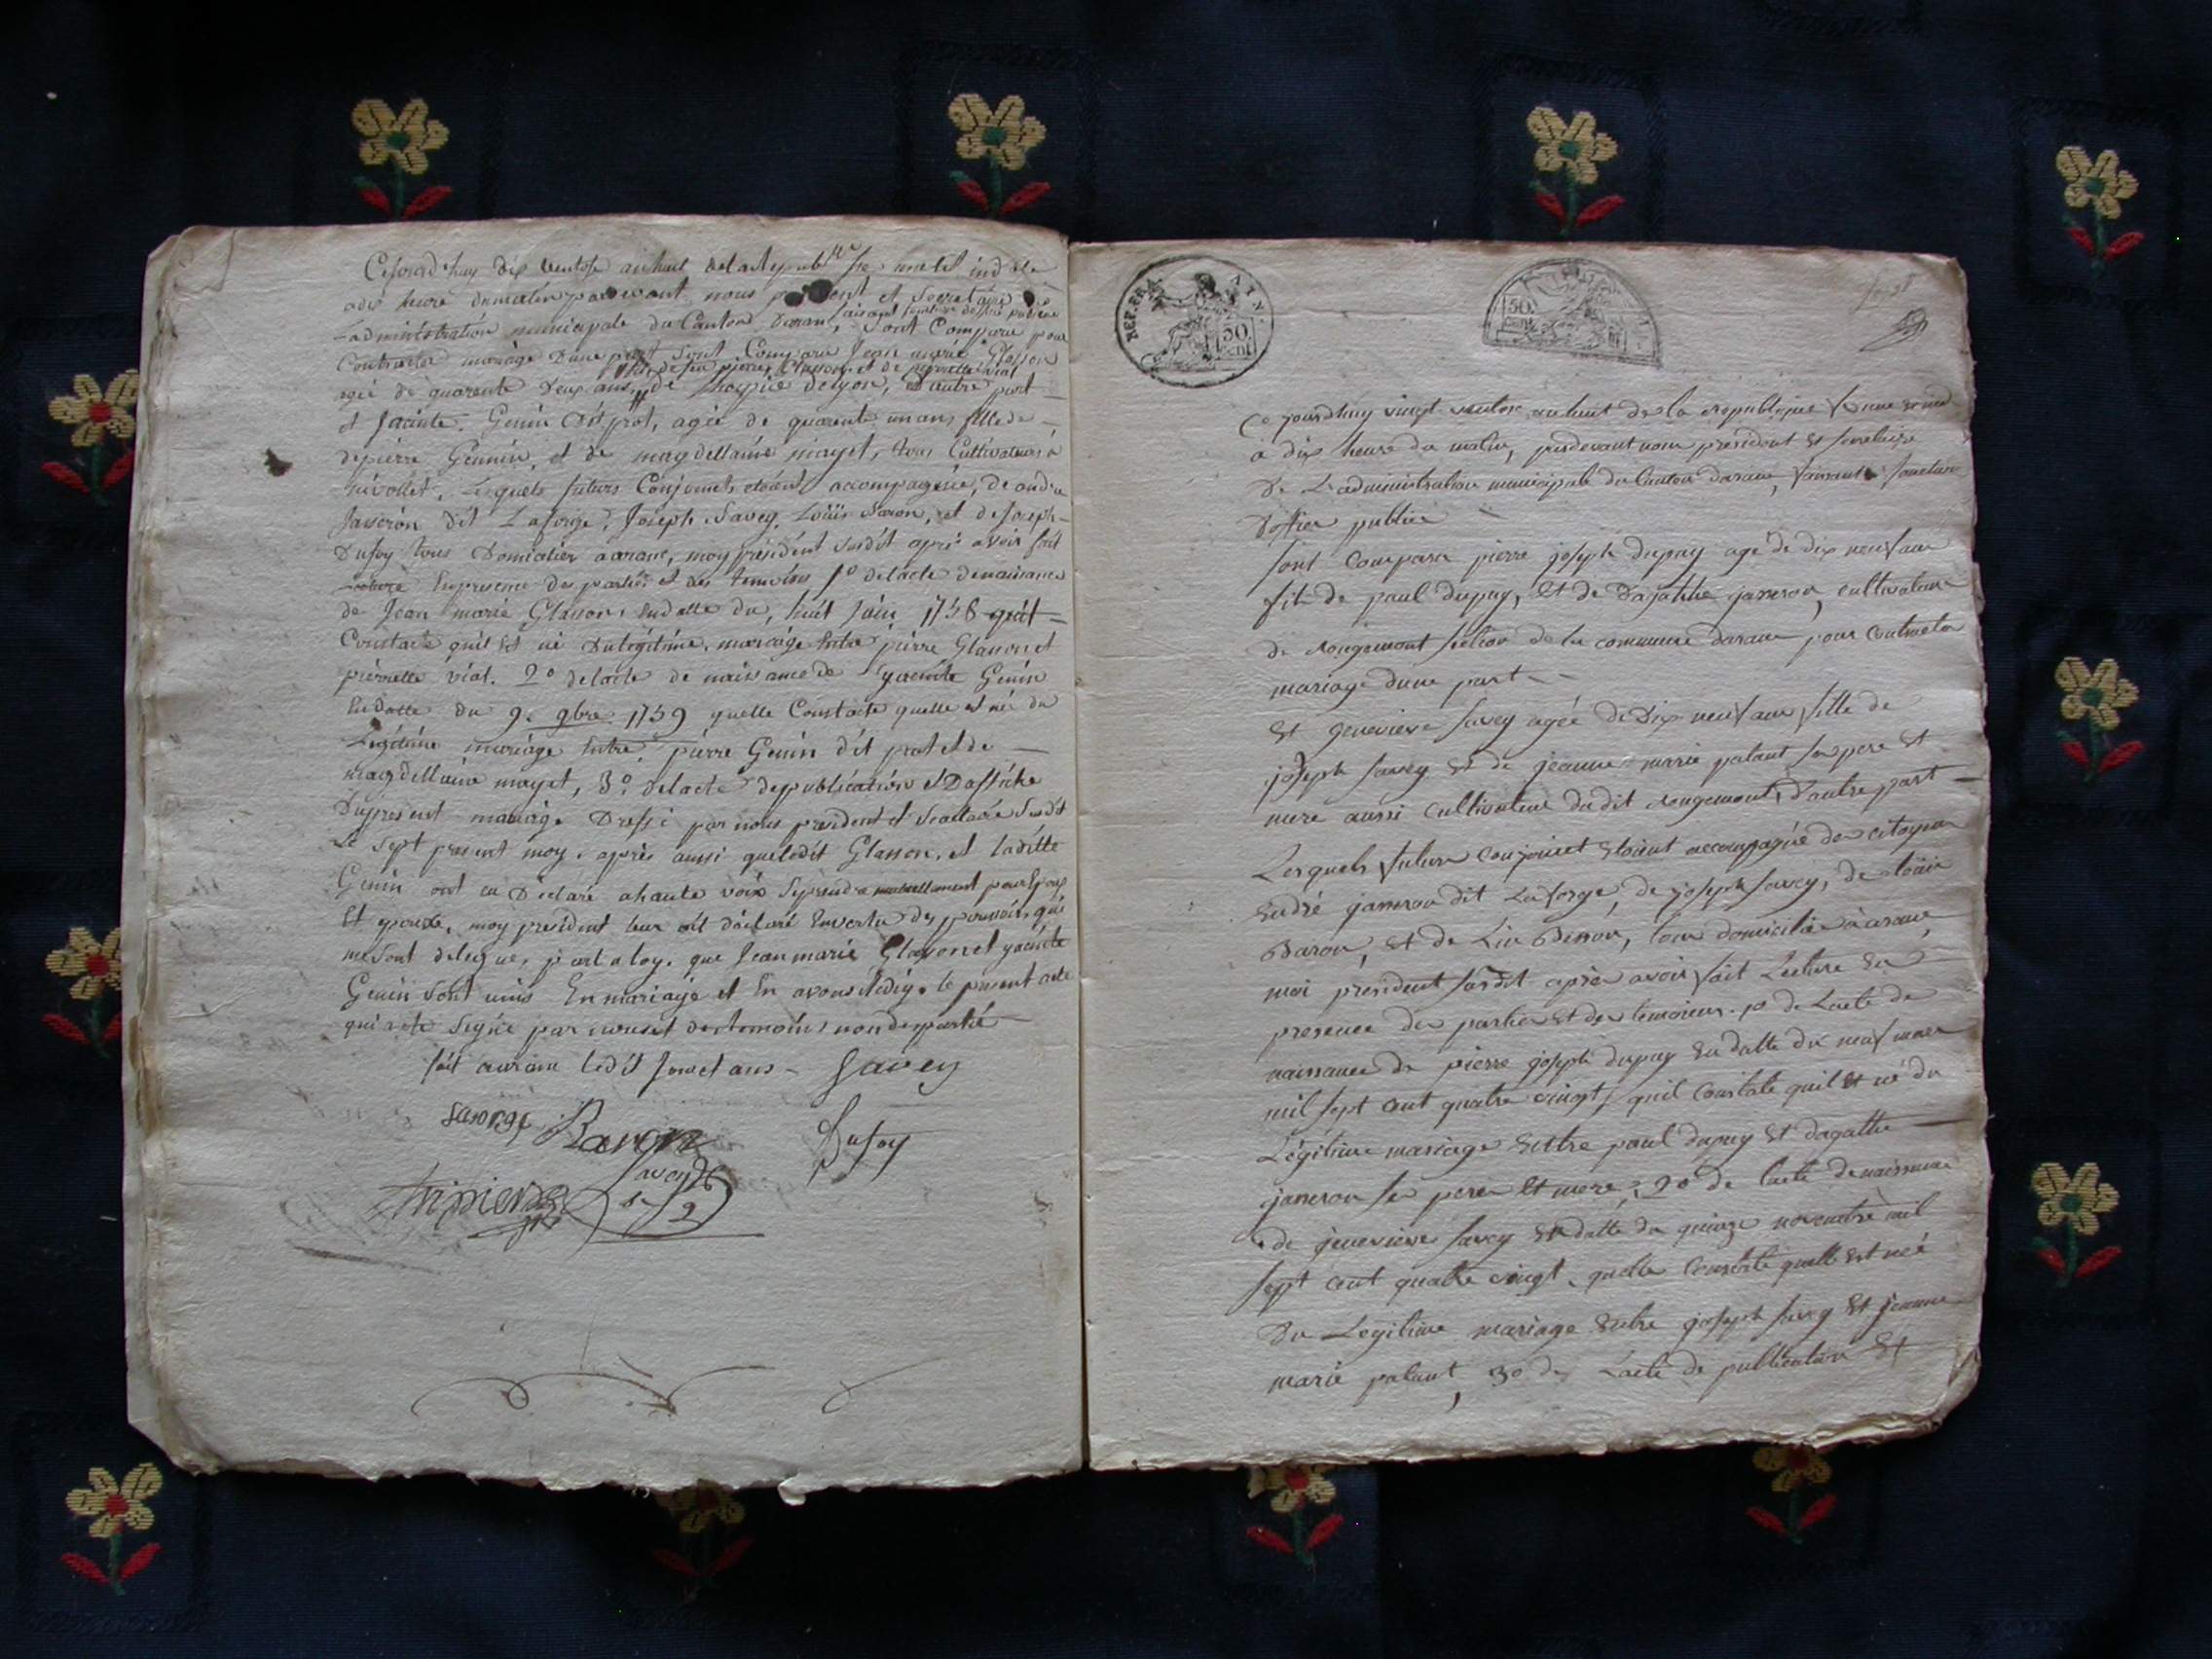 Cejourd'huy dix ventose an huit de la Republique françe une et ind
a dix heure du matin pardevant nous president et secretaire de
L'administration municipale du Canton Daran, faisant fonction dofficié publicue
sont Comparu pour
Contracter mariage Dune part sont Comparu Jean marie Glasson
fils de feu pierre Glasson et de pierrette vial
agé de quarente Deux ans, de hospice de lyon, et autre part
et Jacinte Genin dit prot, agée de quarente un ans fille de
de pierre Gennin, et de magdellaine mayet, tous Cultivateurs à
nivollet, Lesquels futurs Conjoinets etoient accompagnée, de andre
Janeron dit Laforge, Joseph Savey, Louis Baron, et de Joseph
Dufoy tous Domicilier a arane, moy président susdit aprè avoir fait
Lecture En presence des parties et des temoins 1º de lacte de naissance
de Jean marie Glasson, en datte du, huit Juin 1758 quit
Constate quil est né Du legitime mariage Entre pierre Glasson et
pierrette vial. 2º de lacte de naissance de yacinte Genin
En datte du 9e 9bre 1759 quelle Constate quelle est née du
Legitime mariage Entre pierre Genin dit prot et de
magdellaine mayet, 3º de lacte de publication et Daffiche
Du present mariage Dressé par nous president et secretaire susdit
Le sept present moy, après aussi que ledit Glasson, et laditte
Genin ont eu Déclaré a haute voix se prendre mutuellement pour Epoux
Et epouse, moy president leur ait déclaré En vertu des pouvoirs qui
me sont delegues, part la loy, que Jean marie Glasson et yacinte
Genin sont unis En mariage et En avons rédigé le present acte
qui a ete Signée par nous et des temoins non des partié
fait a arane ledit jour et ans - Savey
Laforge Baron Dufoy
tripier
savey
REP. FRA. AIN
50 cent
50 cent
Ce jourdhuy vingt ventose an huit de la republique francaise une et ind
a dix heure du matin, pardevant nous president et secretaire
De L'administration municipale du Canton darane, faisant fonction
Dofficier publicue
sont Comparu pierre joseph dupuy agé de dix neuf ans
fils de paul dupuy, et de Dagathe janeron, cultivateur
de rougemont section de la commune darane pour Contracter
mariage dune part
Et genevieve savey agée de Dix neuf ans fille de
joseph savey et de jeanne marie palant ses pere et
mere aussi cultivateur dudit rougemont, D'autre part
Lesquels futurs conjoinet etoient accompagné des citoyens
andré janeron dit Laforge, de joseph savey, de louis
Baron, et de Lin Besson, tous domicilié à arane,
moi president susdit après avoir fait Lecture En
presence des parties et des temoins. 1º de Lacte de
naissance de pierre joseph dupuy En datte du neuf mars
mil sept cent quatre vingt, quil Constate quil est né du
Legitime mariage Entre paul dupuy et dagathe
janeron ses peres et mere, 2º de Lacte de naissance
de genevieve savey En datte du quinze novembre mil
sept cent quatre vingt, quelle Constate quelle est née
Du Legitime mariage Entre joseph savey et jeanne
marie palant, 3º de Lacte de publication Et